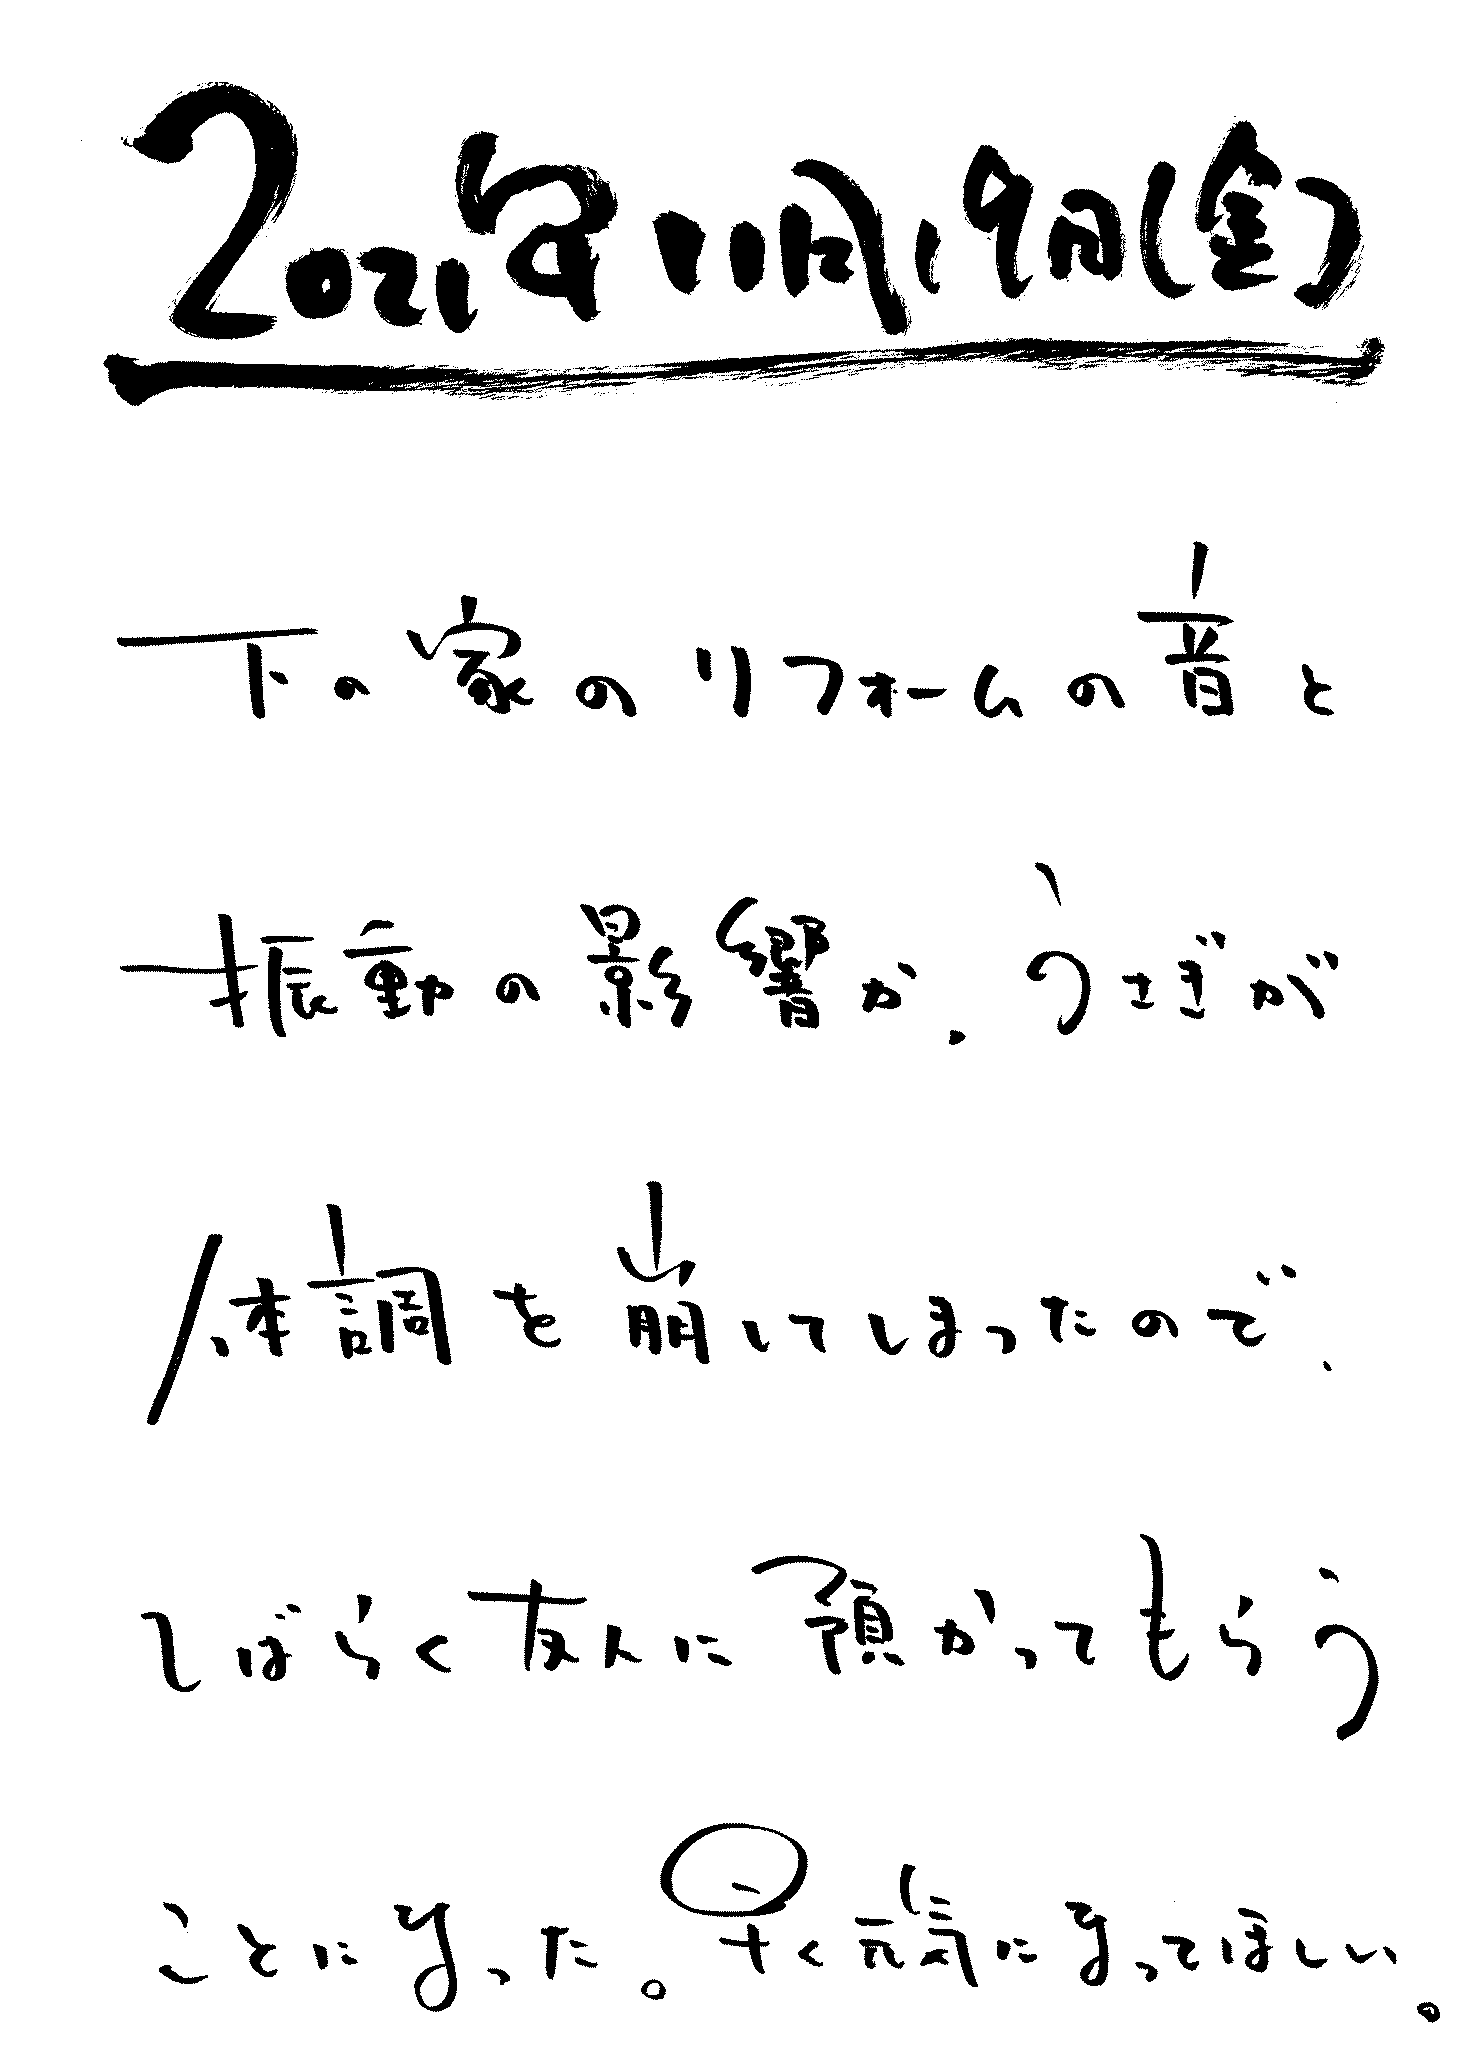 2021年11月19日(金)
下の家のリフォームの音と
振動の影響か、うさぎが
体調を崩してしまったので、
しばらく友人に預かってもらう
ことになった。早く元気になってほしい。